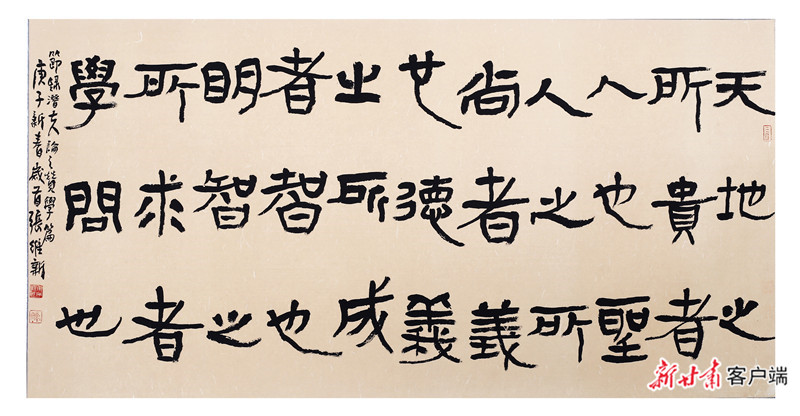 天地之
所貴者
人也聖
人之所
尚者義
也德義
之所成
者智也
明智之
所求者
學問也
節錄潛夫論之贊學篇
庚子新春歲首張維新
新甘肃客户端